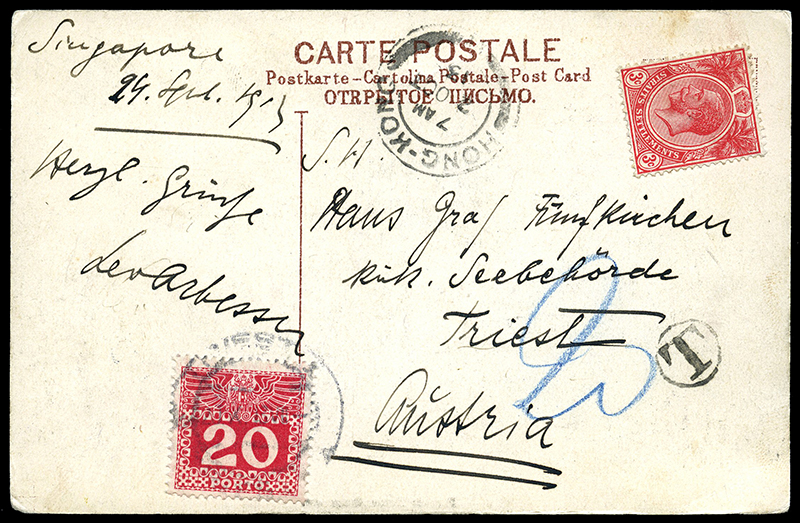 Singapore
24. Sept. 1913
CARTE POSTALE
Postkarte–Cartolina Postale–Post Card
ОТКРЫТОЕ ПИСЬМО.
HONG-KONG
7 AM
7 OC
STRAITS SETTLEMENTS
3c 3c
Herzl. Grüße
Lev Arbesser
S. H.
Hans Graf Fünfkirchen
k.u.k. Seebehörde
Triest
Austria
T
20
PORTO